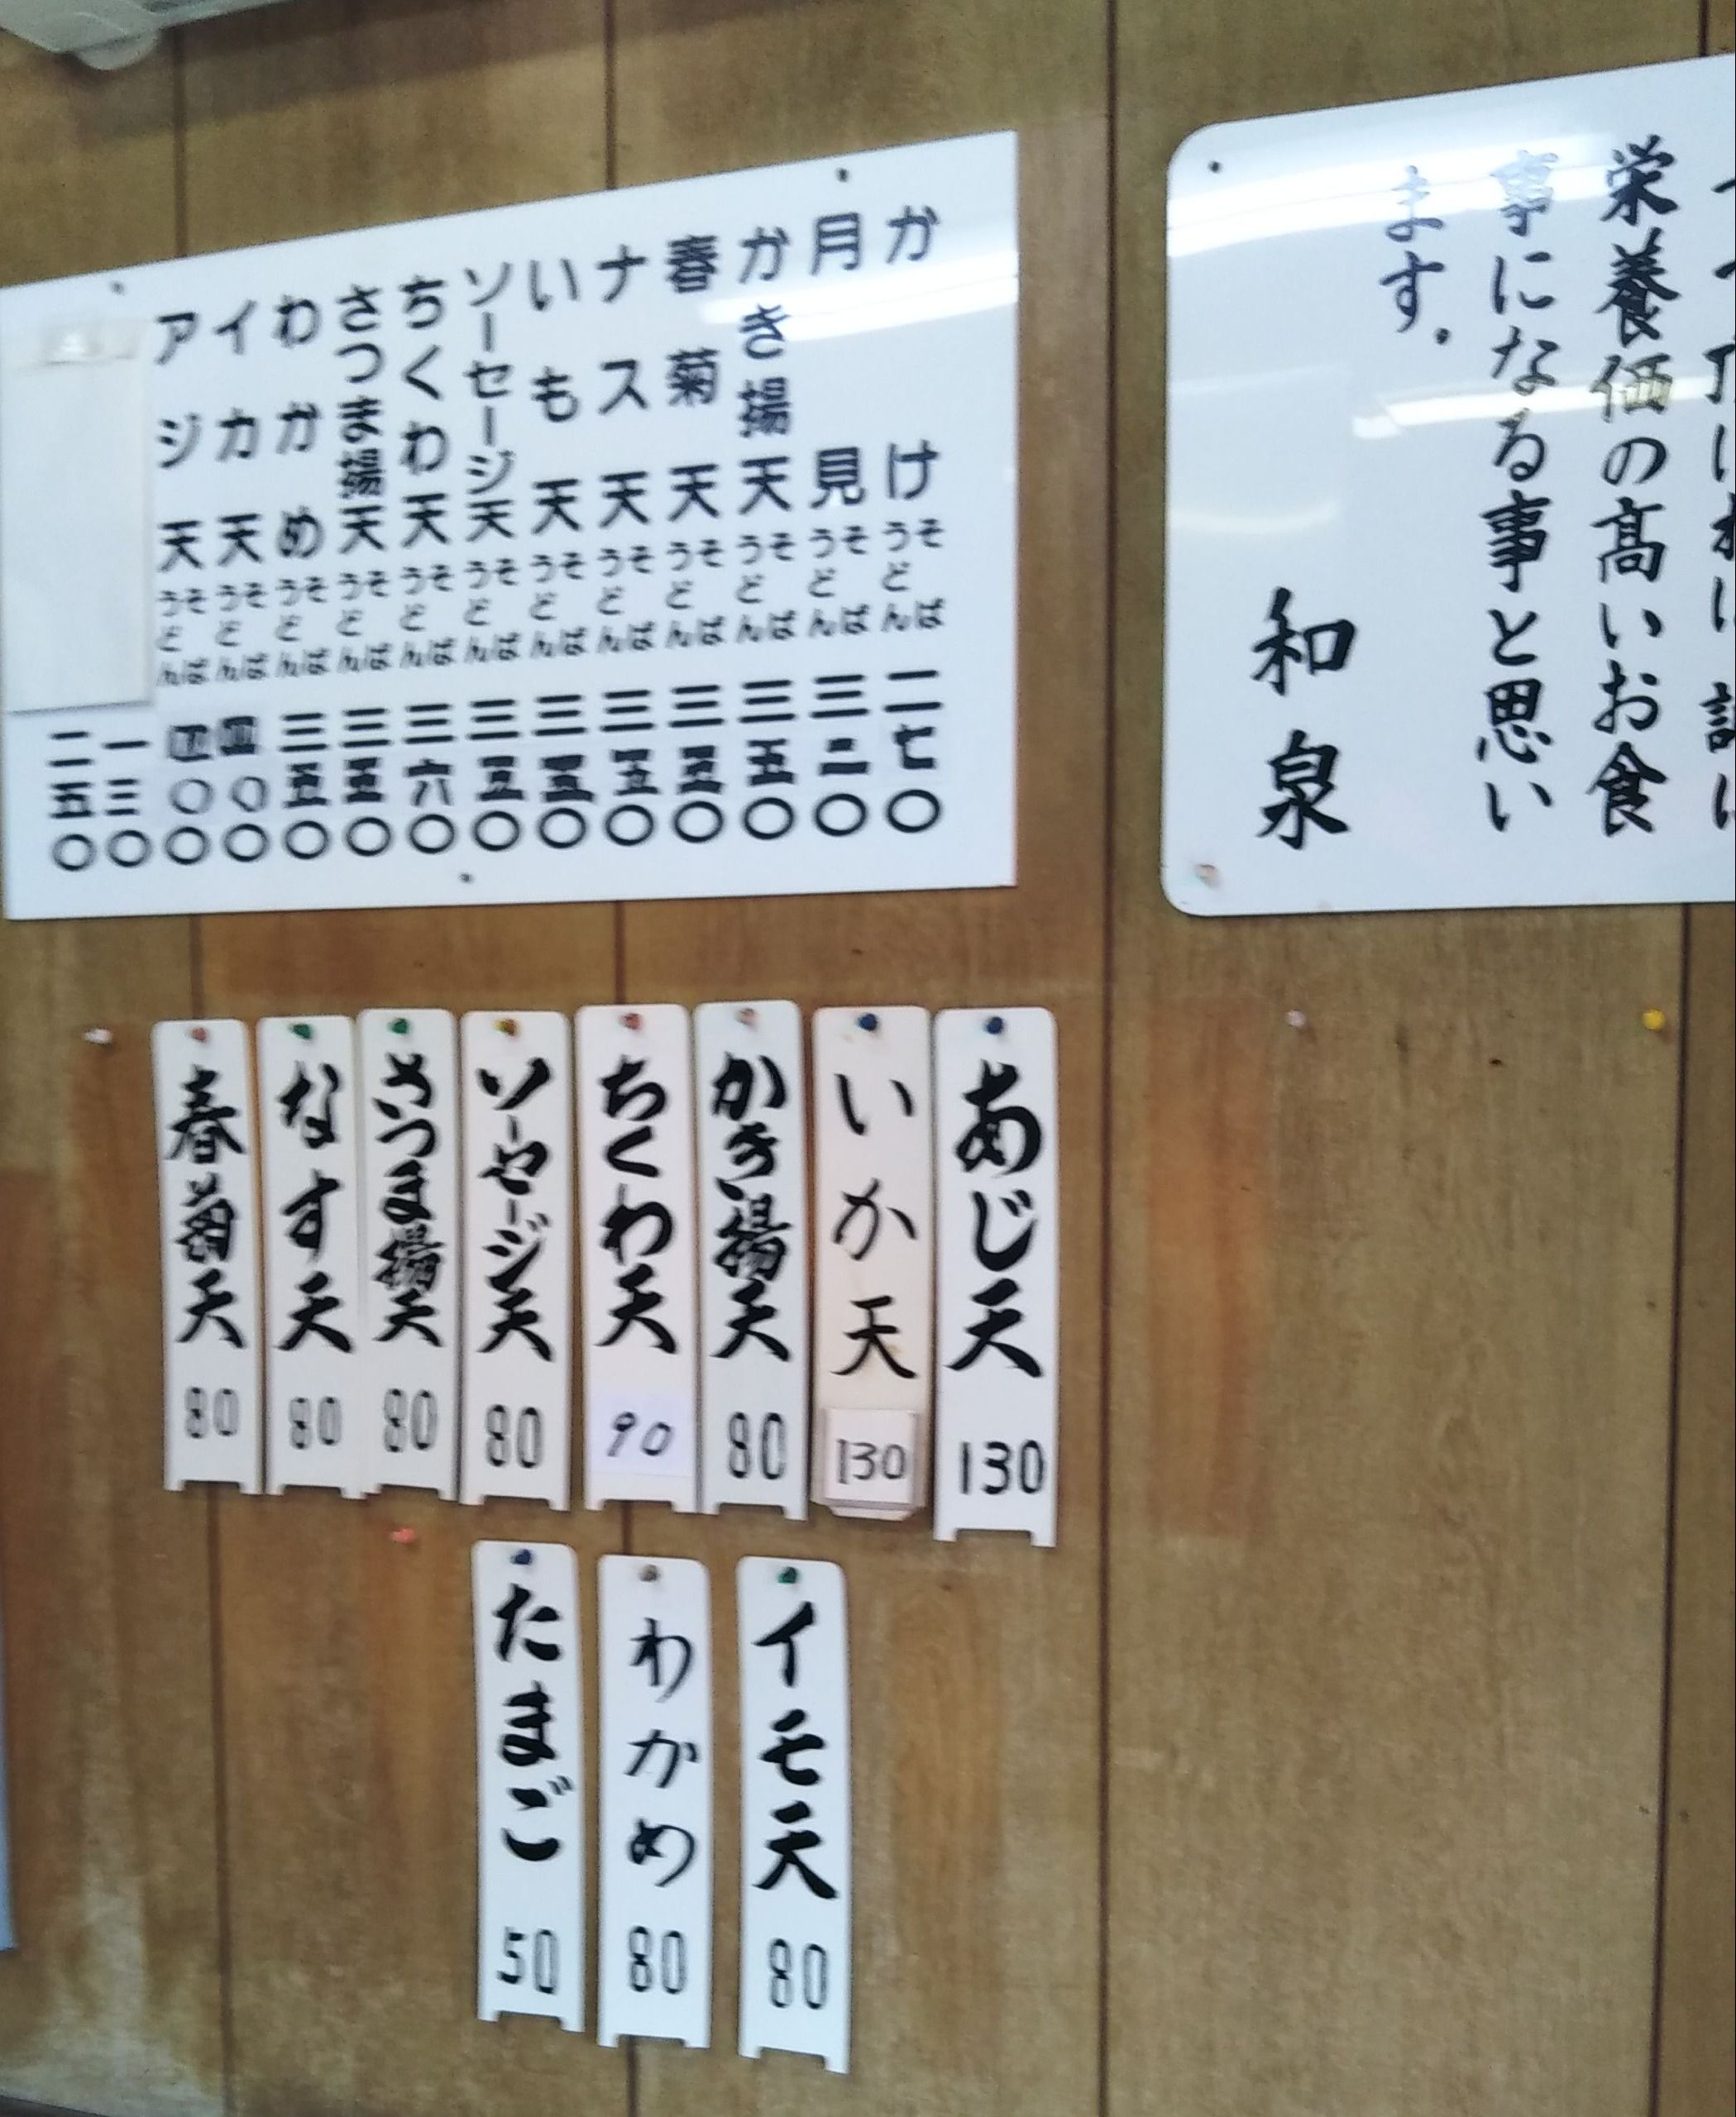 栄養価の高いお食
事になる事と思い
ます。
和泉
かけ うどん そば 二七〇
月見 うどん そば 三二〇
かき揚天 うどん そば 三五〇
春菊天 うどん そば 三五〇
ナス天 うどん そば 三五〇
いも天 うどん そば 三五〇
ソーセージ天 うどん そば 三五〇
ちくわ天 うどん そば 三六〇
さつま揚天 うどん そば 三五〇
わかめ うどん そば 三五〇
イカ天 うどん そば 四〇〇
アジ天 うどん そば 四〇〇
一三〇
二五〇
あじ天 130
いか天 130
かき揚天 80
ちくわ天 90
ソーセージ天 80
さつま揚天 80
なす天 80
春菊天 80
イモ天 80
わかめ 80
たまご 50